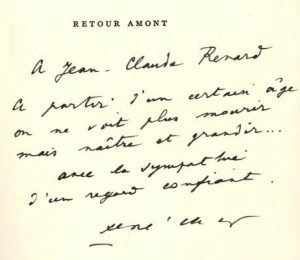 RETOUR AMONT
A Jean-Claude Renard
A partir d'un certain âge
on ne voit plus mourir
mais naître et grandir...
avec la sympathie
d'un regard confiant.
René Char